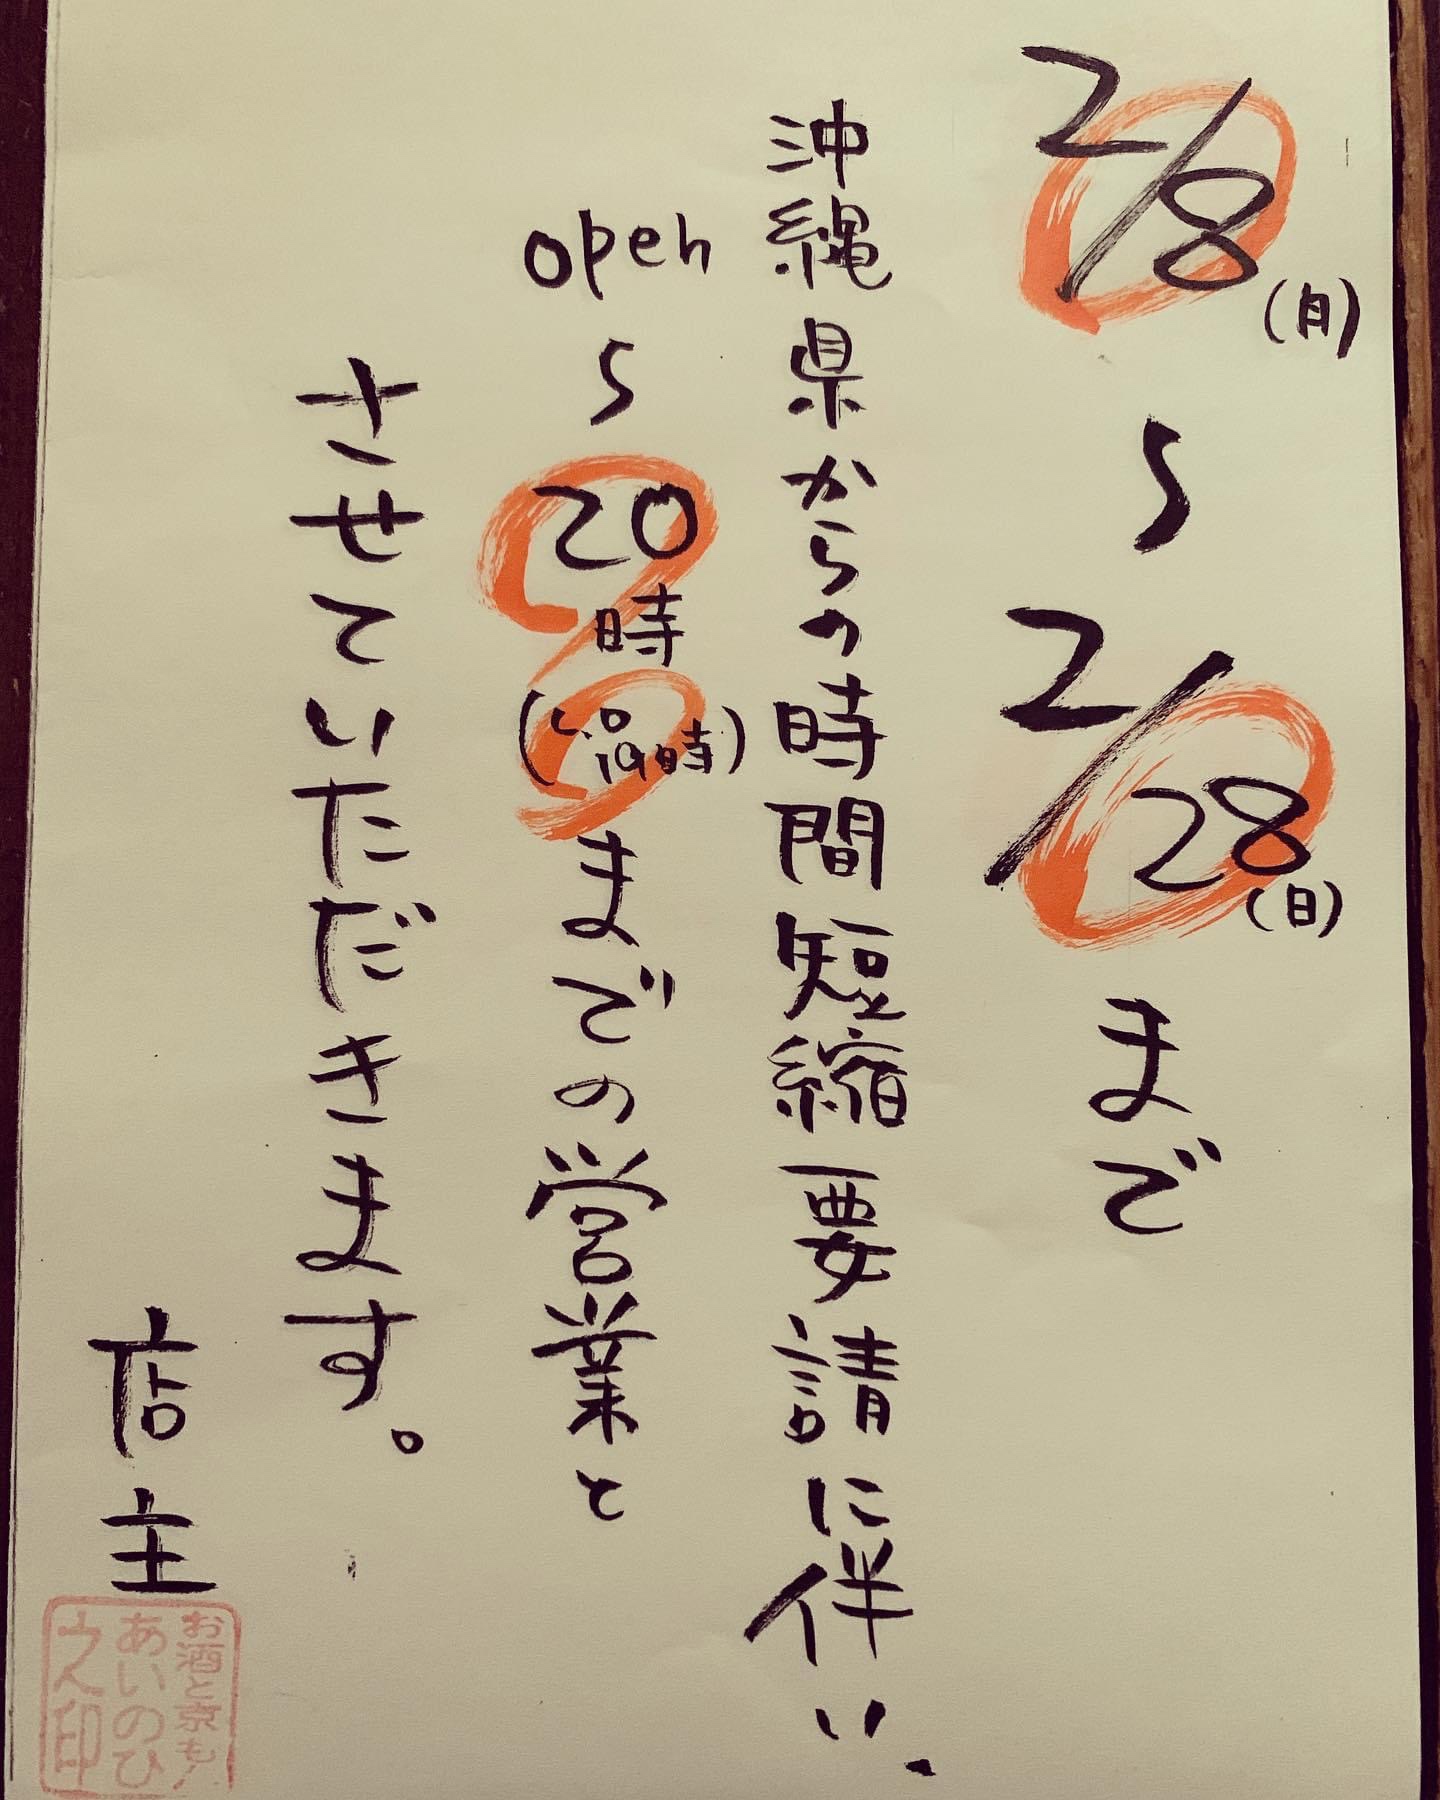 2/8(月)〜2/28(日)まで
沖縄県からの時間短縮要請に伴い、
open〜20時(L.O 19時)までの営業と
させていただきます。
店主
お酒と京も
あいのひ
之印